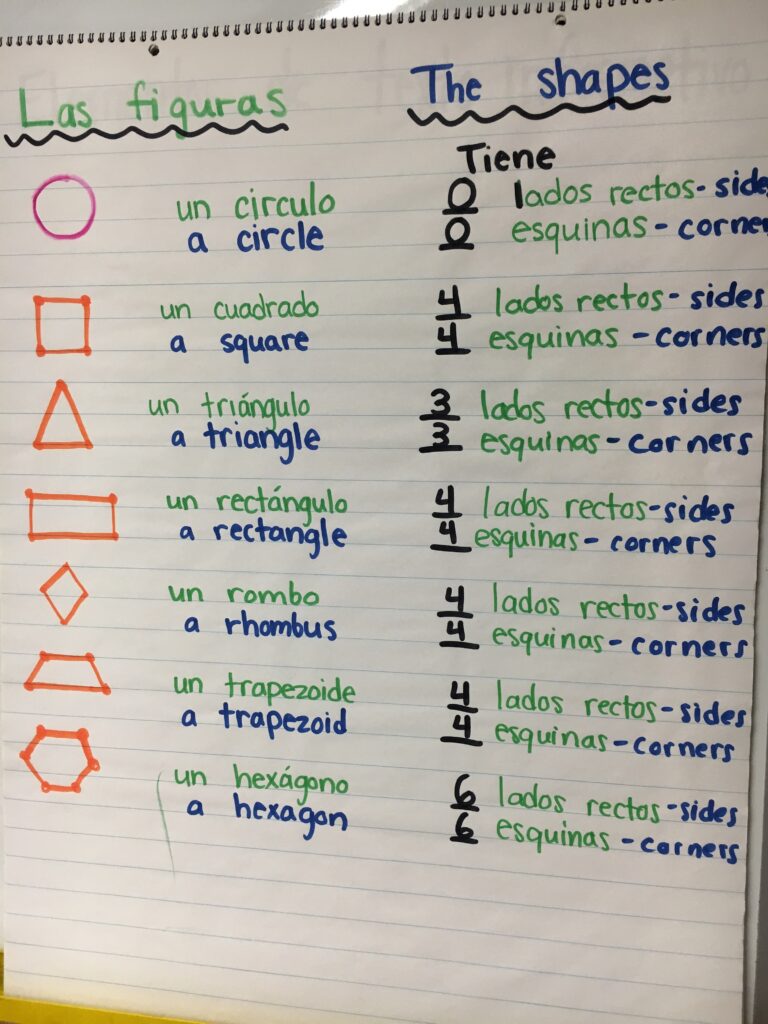 Las figuras
The shapes
Tiene
un circulo
a circle
0 lados rectos- side
0 esquinas - corner
un cuadrado
a square
4 lados rectos- sides
4 esquinas - corners
un triángulo
a triangle
3 lados rectos-sides
3 esquinas - corners
un rectángulo
a rectangle
4 lados rectos-sides
4 esquinas- corners
un rombo
a rhombus
4 lados rectos-sides
4 esquinas- corners
un trapezoide
a trapezoid
4 lados rectos-sides
4 esquinas-corners
un hexágono
a hexagon
6 lados rectos-sides
6 esquinas -corners